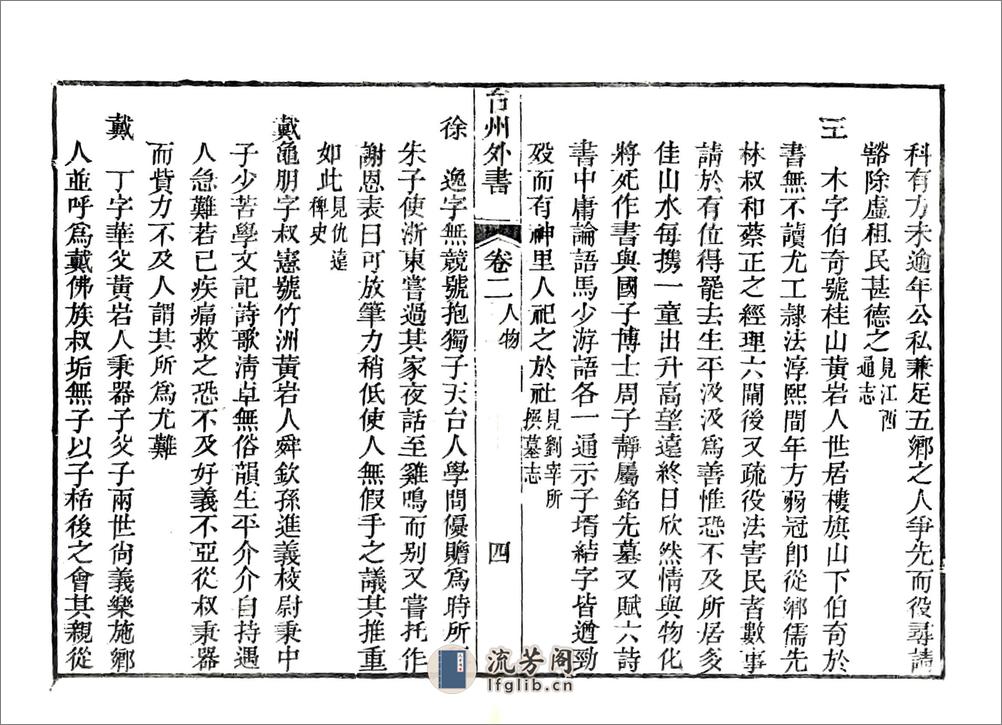 科有方未逾年公私兼足五鄉之人爭先而役尋請
豁除虛租民甚德之見江西通志
王　木字伯奇號桂山黃岩人世居樓旗山下伯奇於
書無不讀尤工隷法淳熙間年方弱冠卽從鄉儒先
林叔和蔡正之經理六閘後又疏役法害民者數事
請於有位得罷去生平汲汲爲善惟恐不及所居多
佳山水每携一童出升高望遠終日欣然情與物化
將死作書與國子博士周子靜屬銘先墓又賦六詩
書中庸論語馬少游語各一通示子壻結字皆遒勁
歿而有神里人祀之於社見劉宰所撰墓志
台州外書　卷二　人物　四
徐　逸字無競號抱獨子天台人學問優贍爲時所
朱子使浙東嘗過其家夜話至雞鳴而别又嘗托作
謝恩表曰可放筆力稍低使人無假手之議其推重
如此見仇遠稗史
戴龜朋字叔憲號竹洲黃岩人舜欽孫進義校尉秉中
子少苦學文記詩歌淸卓無俗韻生平介介自持遇
人急難若己疾痛救之恐不及好義不亞從叔秉器
而貲力不及人謂其所爲尤難
戴　丁字華父黃岩人秉器子父子兩世尙義樂施鄉
人並呼爲戴佛族叔垢無子以子栝後之會其親從
流芳阁
lfglib.cn